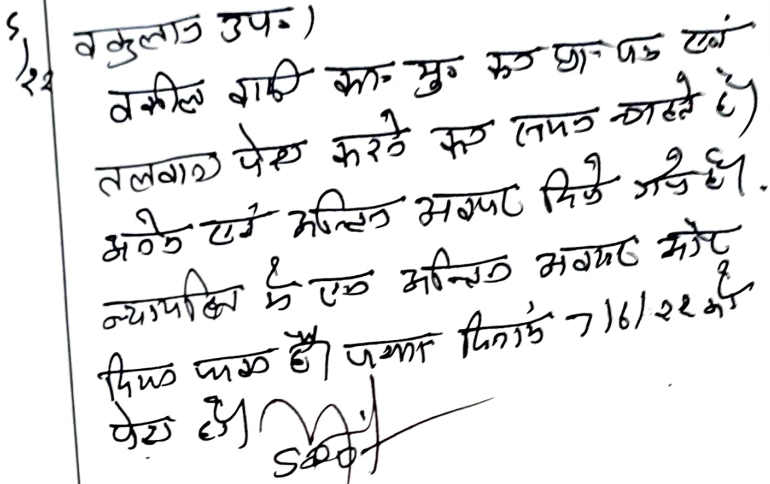 5/22
वकुलान उप०।
वकील वादी का० मु० का प्रा० पत्र एवं
तलवाना पेश करने का समय चाहते है।
अनेक एवं अन्तिम अवसर दिये गये है।
न्यायहित में एक अन्तिम अवसर और
दिया जाता है। पत्रा० दिनांक 7/6/22 को
पेश हो।